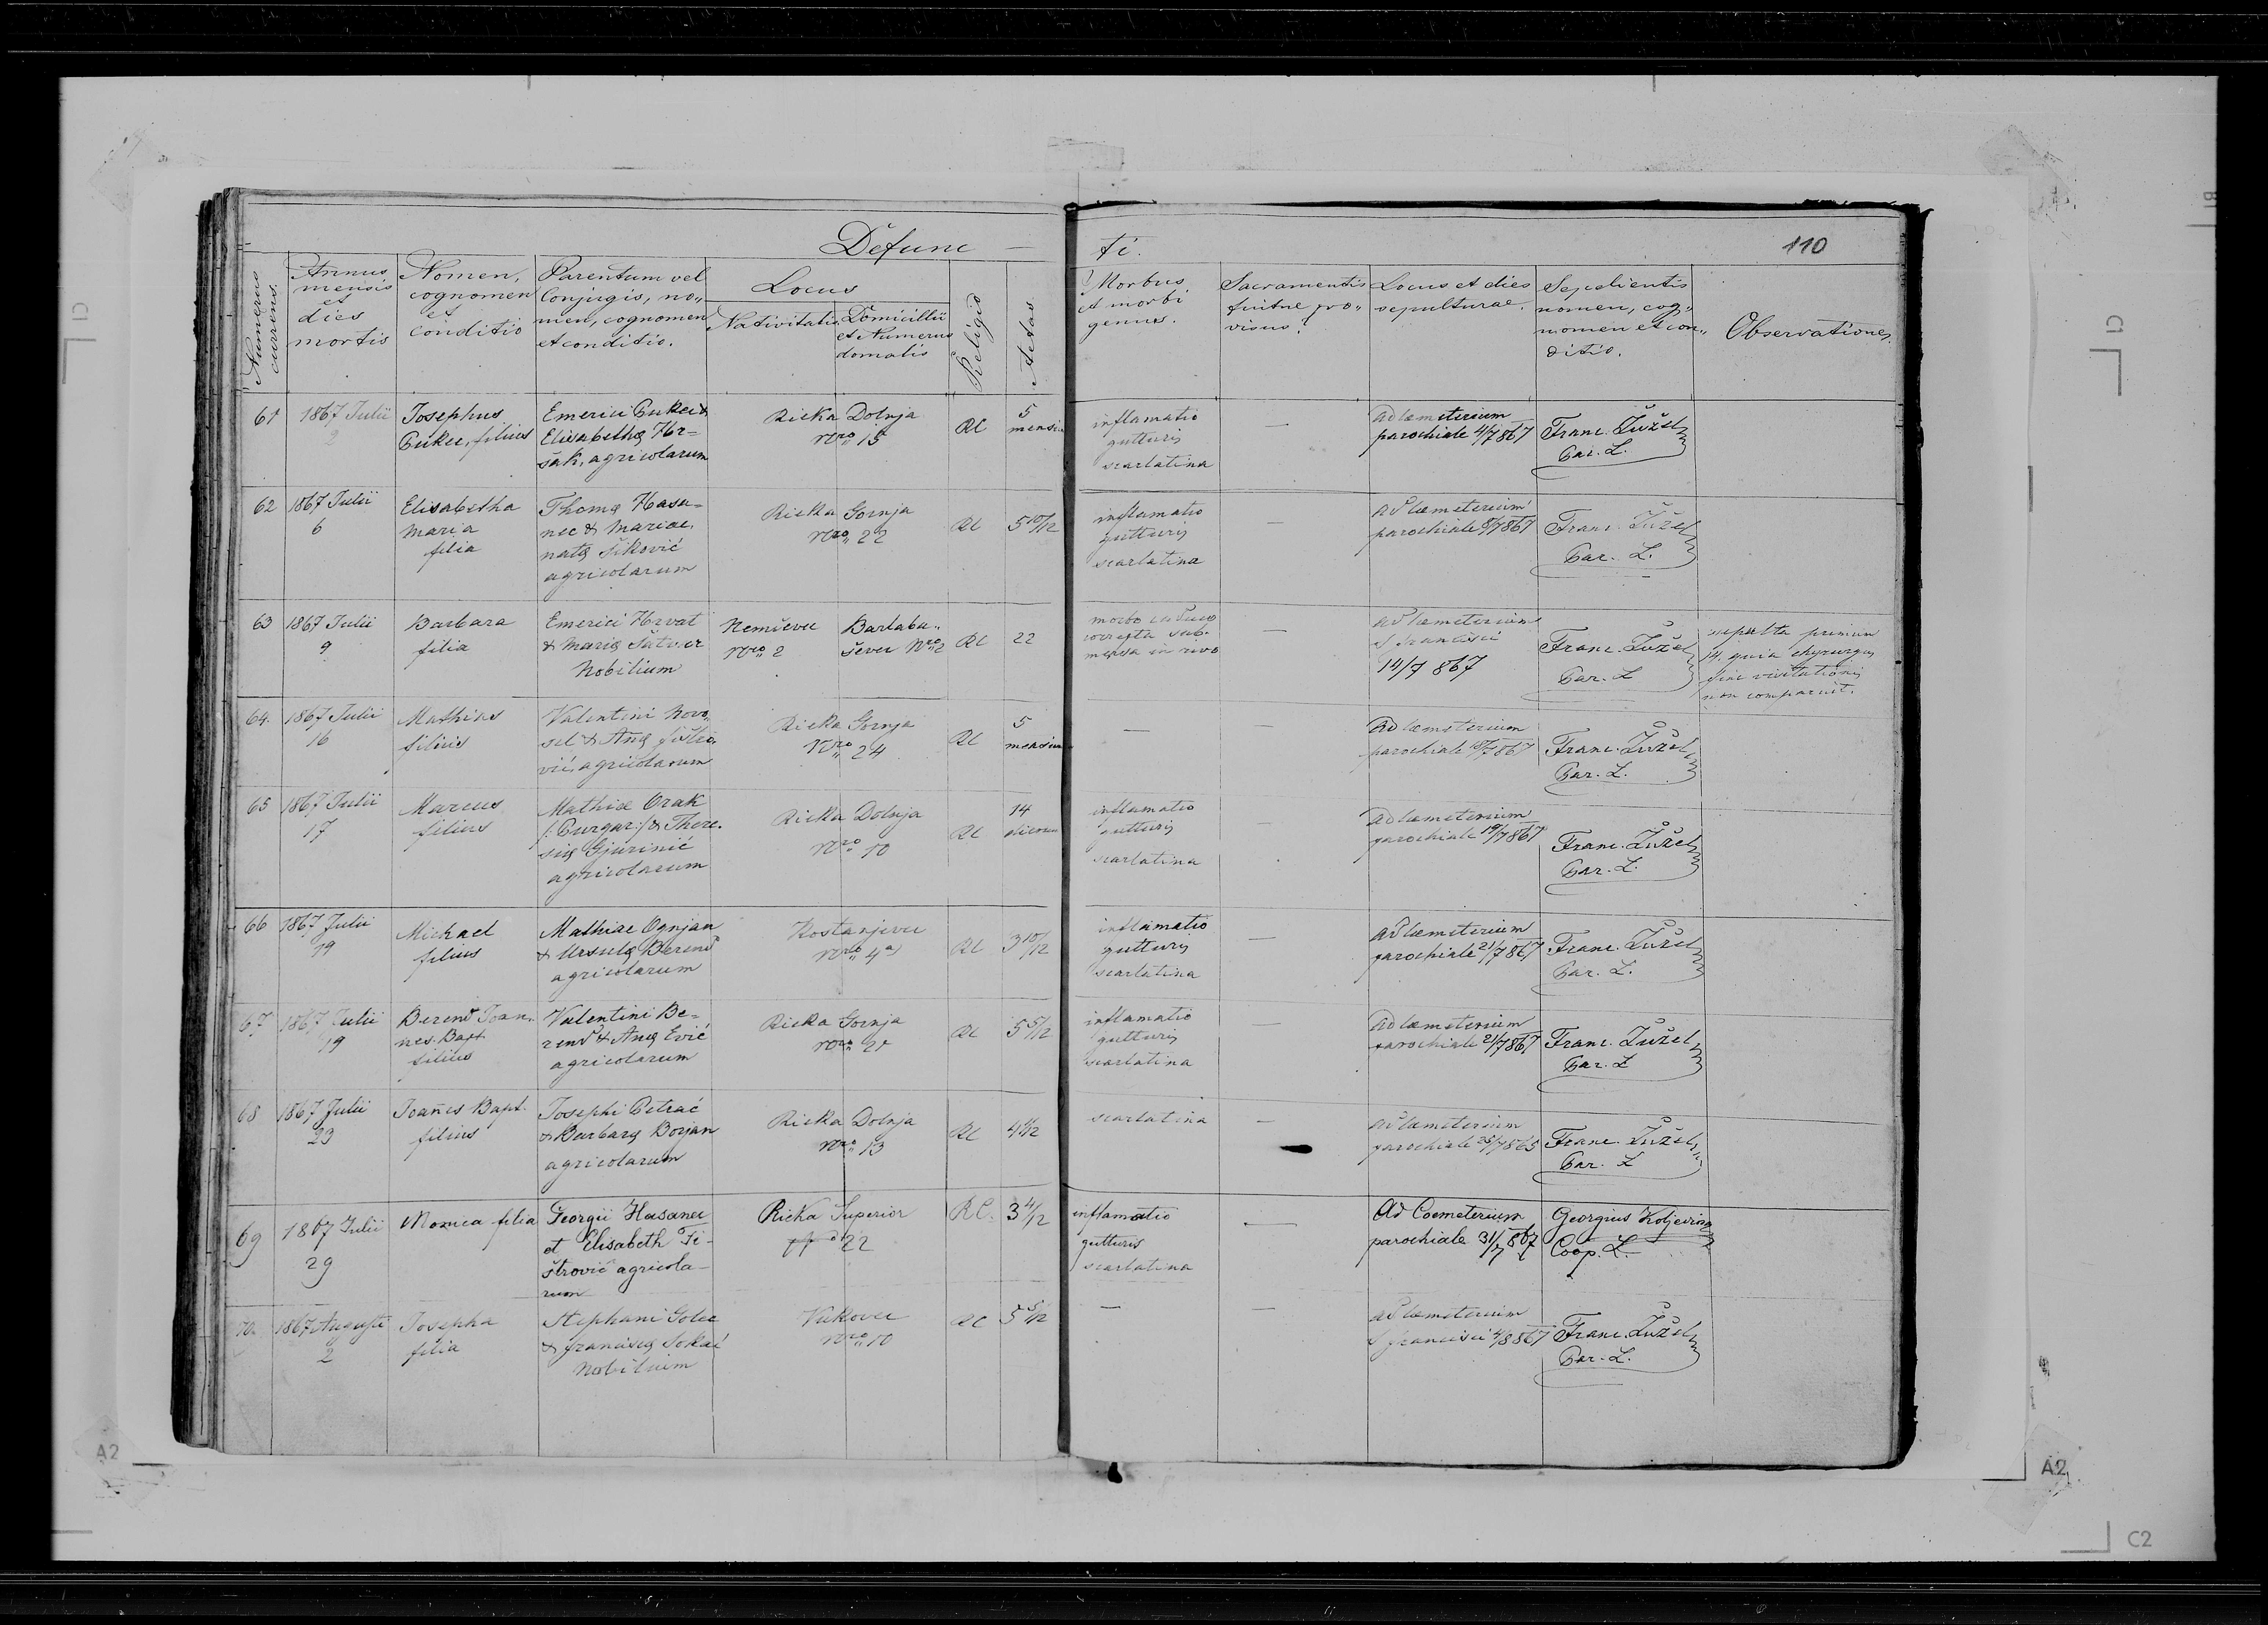 Defunc — ti.
110
Numerus currens.
Annus mensis et dies mortis
Nomen, cognomen et conditio
Parentum vel Conjugis, no„ men, cognomen et conditio.
Locus
Nativitatis
Domicillii et Numerus domalis
Religio
Aetas.
Morbus et morbi genus.
Sacramentis fuitne pro„ visus?
Locus et dies sepulturae.
Sepelientis nomen, cog„ nomen et con„ ditio.
Observationes.
61 1867 Julii 2
Josephus Cukec, filius
Emerici Cukec & Elisabethę Hr= šak, agricolarum
Rieka Dolnja Nro 15
RC
5 mensiu
inflamatio gutturis scarlatina
—
ad cæmeterium parochiale 4/7 867
Franc. Žužel Par. L.
62 1867 Julii 6
Elisabetha Maria filia
Thomę Hasa= nec & Mariae, natę Šiković agricolarum
Rieka Gornja Nro 22
RC
5 10/12
inflamatio gutturis scarlatina
—
ad cæmeterium parochiale 8/7 867
Franc. Žužel Par. L.
63 1867 Julii 9
Barbara filia
Emerici Horvat & Marię Nobilium
Nemčevec Nro 2
Barlabu„ ševec Nro 2
RC
22
morbo caduco correpta sub= mersa in rivo
—
ad cæmeterium S francisci 14/7 867
Franc. Žužel Par. L
sepulta primum 14. quia chyrurgus fine visitationis non comparuit.
64. 1867 Julii 16
Mathias filius
Valentini Novo„ sel & Anę fištro„ vić, agricolarum
Rieka Gornja Nro 24
RC
5 mensiu
—
—
ad cæmeterium parochiale 18/7 867
Franc. Žužel Par. L.
65 1867 Julii 17
Marcus filius
Mathiæ Orak /: Purgar :/ & There= się Gjurinić agricolarum
Rieka Dolnja Nro 10
RC
14 dierum
inflamatio gutturis scarlatina
—
ad cæmeterium parochiale 19/7 867
Franc. Žužel Par. L.
66 1867 Julii 19
Michael filius
Mathiae Ognjan & Ursulę Berend agricolarum
Kostanjevec Nro 4 a)
RC
3 10/12
inflamatio gutturis scarlatina
—
ad cæmeterium parochiale 21/7 867
Franc. Žužel Par. L.
67 1867 Julii 19
Berend Joan„ nes Bapt filius
Valentini Be= rend & Anę Ević agricolarum
Rieka Gornja Nro 21
RC
5 5/12
inflamatio gutturis scarlatina
—
ad cæmeterium parochiale 21/7 867
Franc. Žužel Par. L
68 1867 Julii 23
Joañes Bapt. filius
Josephi Petrać & Barbarę Borjan agricolarum
Rieka Dolnja Nro 13
RC
4 1/12
scarlatina
—
ad cæmeterium parochiale 25/7 865
Franc. Žužel Par. L
69 1867 Julii 29
Monica filia
Georgii Hasanec et Elisabeth Fi- štrović agricola- rum
Rieka Superior No 22
RC.
3 4/12
inflamatio gutturis scarlatina
—
Ad Coemeterium parochiale 31/7 867
Georgius Koljevina Coop. L.
70. 1867 Augusti 2
Josepha filia
Stephani Golec & francisę Sokač Nobilium
Vukovec Nro 10
RC
5 5/12
—
—
ad cæmeterium S francisci 4/8 867
Franc. Žužel Par. L.
C1
C1
B1
A2
A2
C2